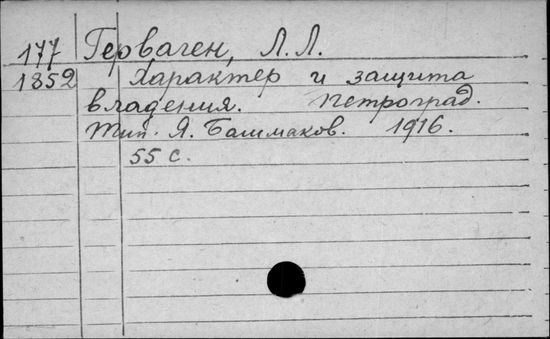 177 Герваген, Л. Л.
1852 Характер и защита
владения. Петроград.
Тип. Я. Башмаков. 1916.
55 с.